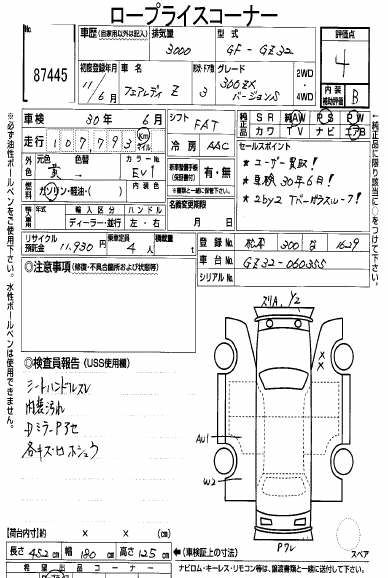 ロープライスコーナー
87445
車歴 (自家用以外は記入)
排気量
型式
評価点
3000
GF-GZ32
4
初度登録年月
車名
ドア・型
グレード
11年 6月
フェアレディ Z
3
300ZX バージョンS
2WD・4WD
内装補助評価 B
車検 30年 6月
シフト FAT
純正品 SR 純AW PS PW
カワ TV ナビ エアB
走行 107793 Km マイル
冷房 AAC
セールスポイント
元色 黄 色替 カラーNo. EV1
新車整備手帳(保証書)付 有・無
★ユーザー買取!
★車検30年6月!
★2by2 Tバールーフ!
燃料 ガソリン・軽油・( ) 内装色
名義変更期限 月 日
年式 輸入区分 ハンドル
ディーラー・並行 左・右
リサイクル預託金 11,930円
乗車定員 4人
積載量 t
登録No. 松本 300
1629
車台No. GZ32-060355
シリアルNo.
◎注意事項 (修復・不具合箇所および状態等)
スリA、Y2
◎検査員報告 (USS使用欄)
シートハンドルスレ
内装汚れ
AU1
W2
Pワレ
【荷台内寸】 × × (cm)
長さ 452 cm 幅 180 cm 高さ 125 cm ◀(車検証上の寸法)
スペア
希望出品コーナー
ナビロム・キーレス・リモコン等は、譲渡書類と一緒に送付して下さい。
★必ず油性ボールペンをご使用下さい。水性ボールペンは使用できません。